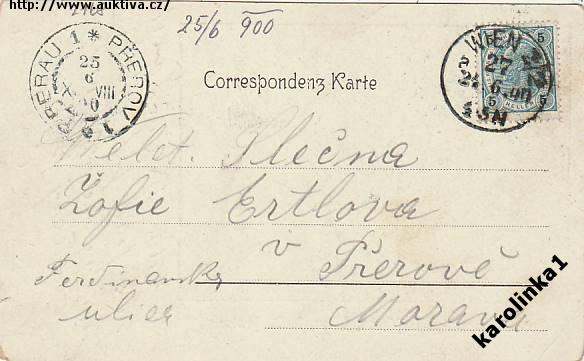 http://www.auktiva.cz/
25/6 900
PRERAU 1 * PŘEROV 1
25
6
VIII
WIEN
27
6.00
5
5
5
5
HELLER
Correspondenz Karte
Velct. Slečna
Žofie Ertlova
v Přerově
Ferdinandsk
ulice
Morava
karolinka1